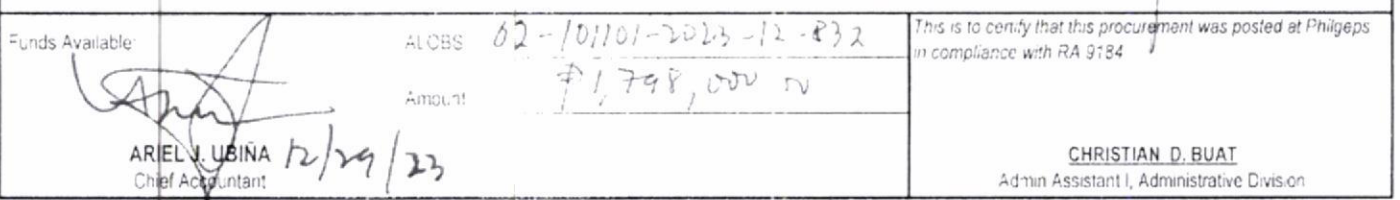 Funds Available:
ALOBS 02-101101-2023-12-832
Amount ₱1,798,000 00
ARIEL J. UBIÑA 12/29/23
Chief Accountant
This is to certify that this procurement was posted at Philgeps
in compliance with RA 9184
CHRISTIAN D. BUAT
Admin Assistant I, Administrative Division